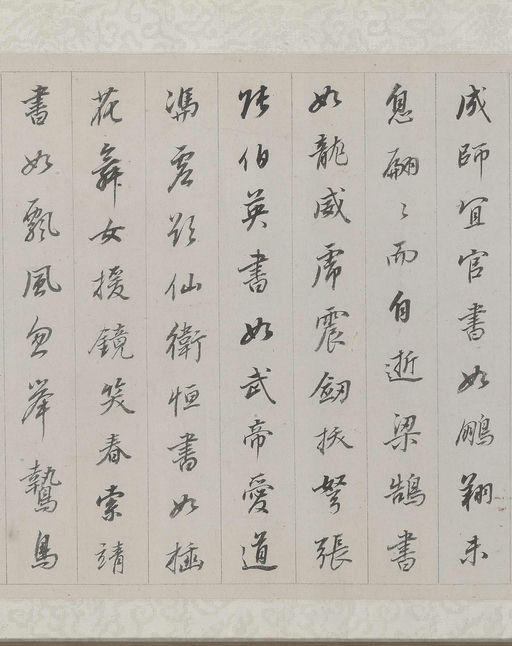 成師宜官書如鵬翔未
息翩〻而自逝梁鵠書
如龍威虎震劒拔弩張
張伯英書如武帝愛道
馮虛欲仙衛恒書如插
花舞女援鏡笑春索靖
書如飄風忽舉鷙鳥